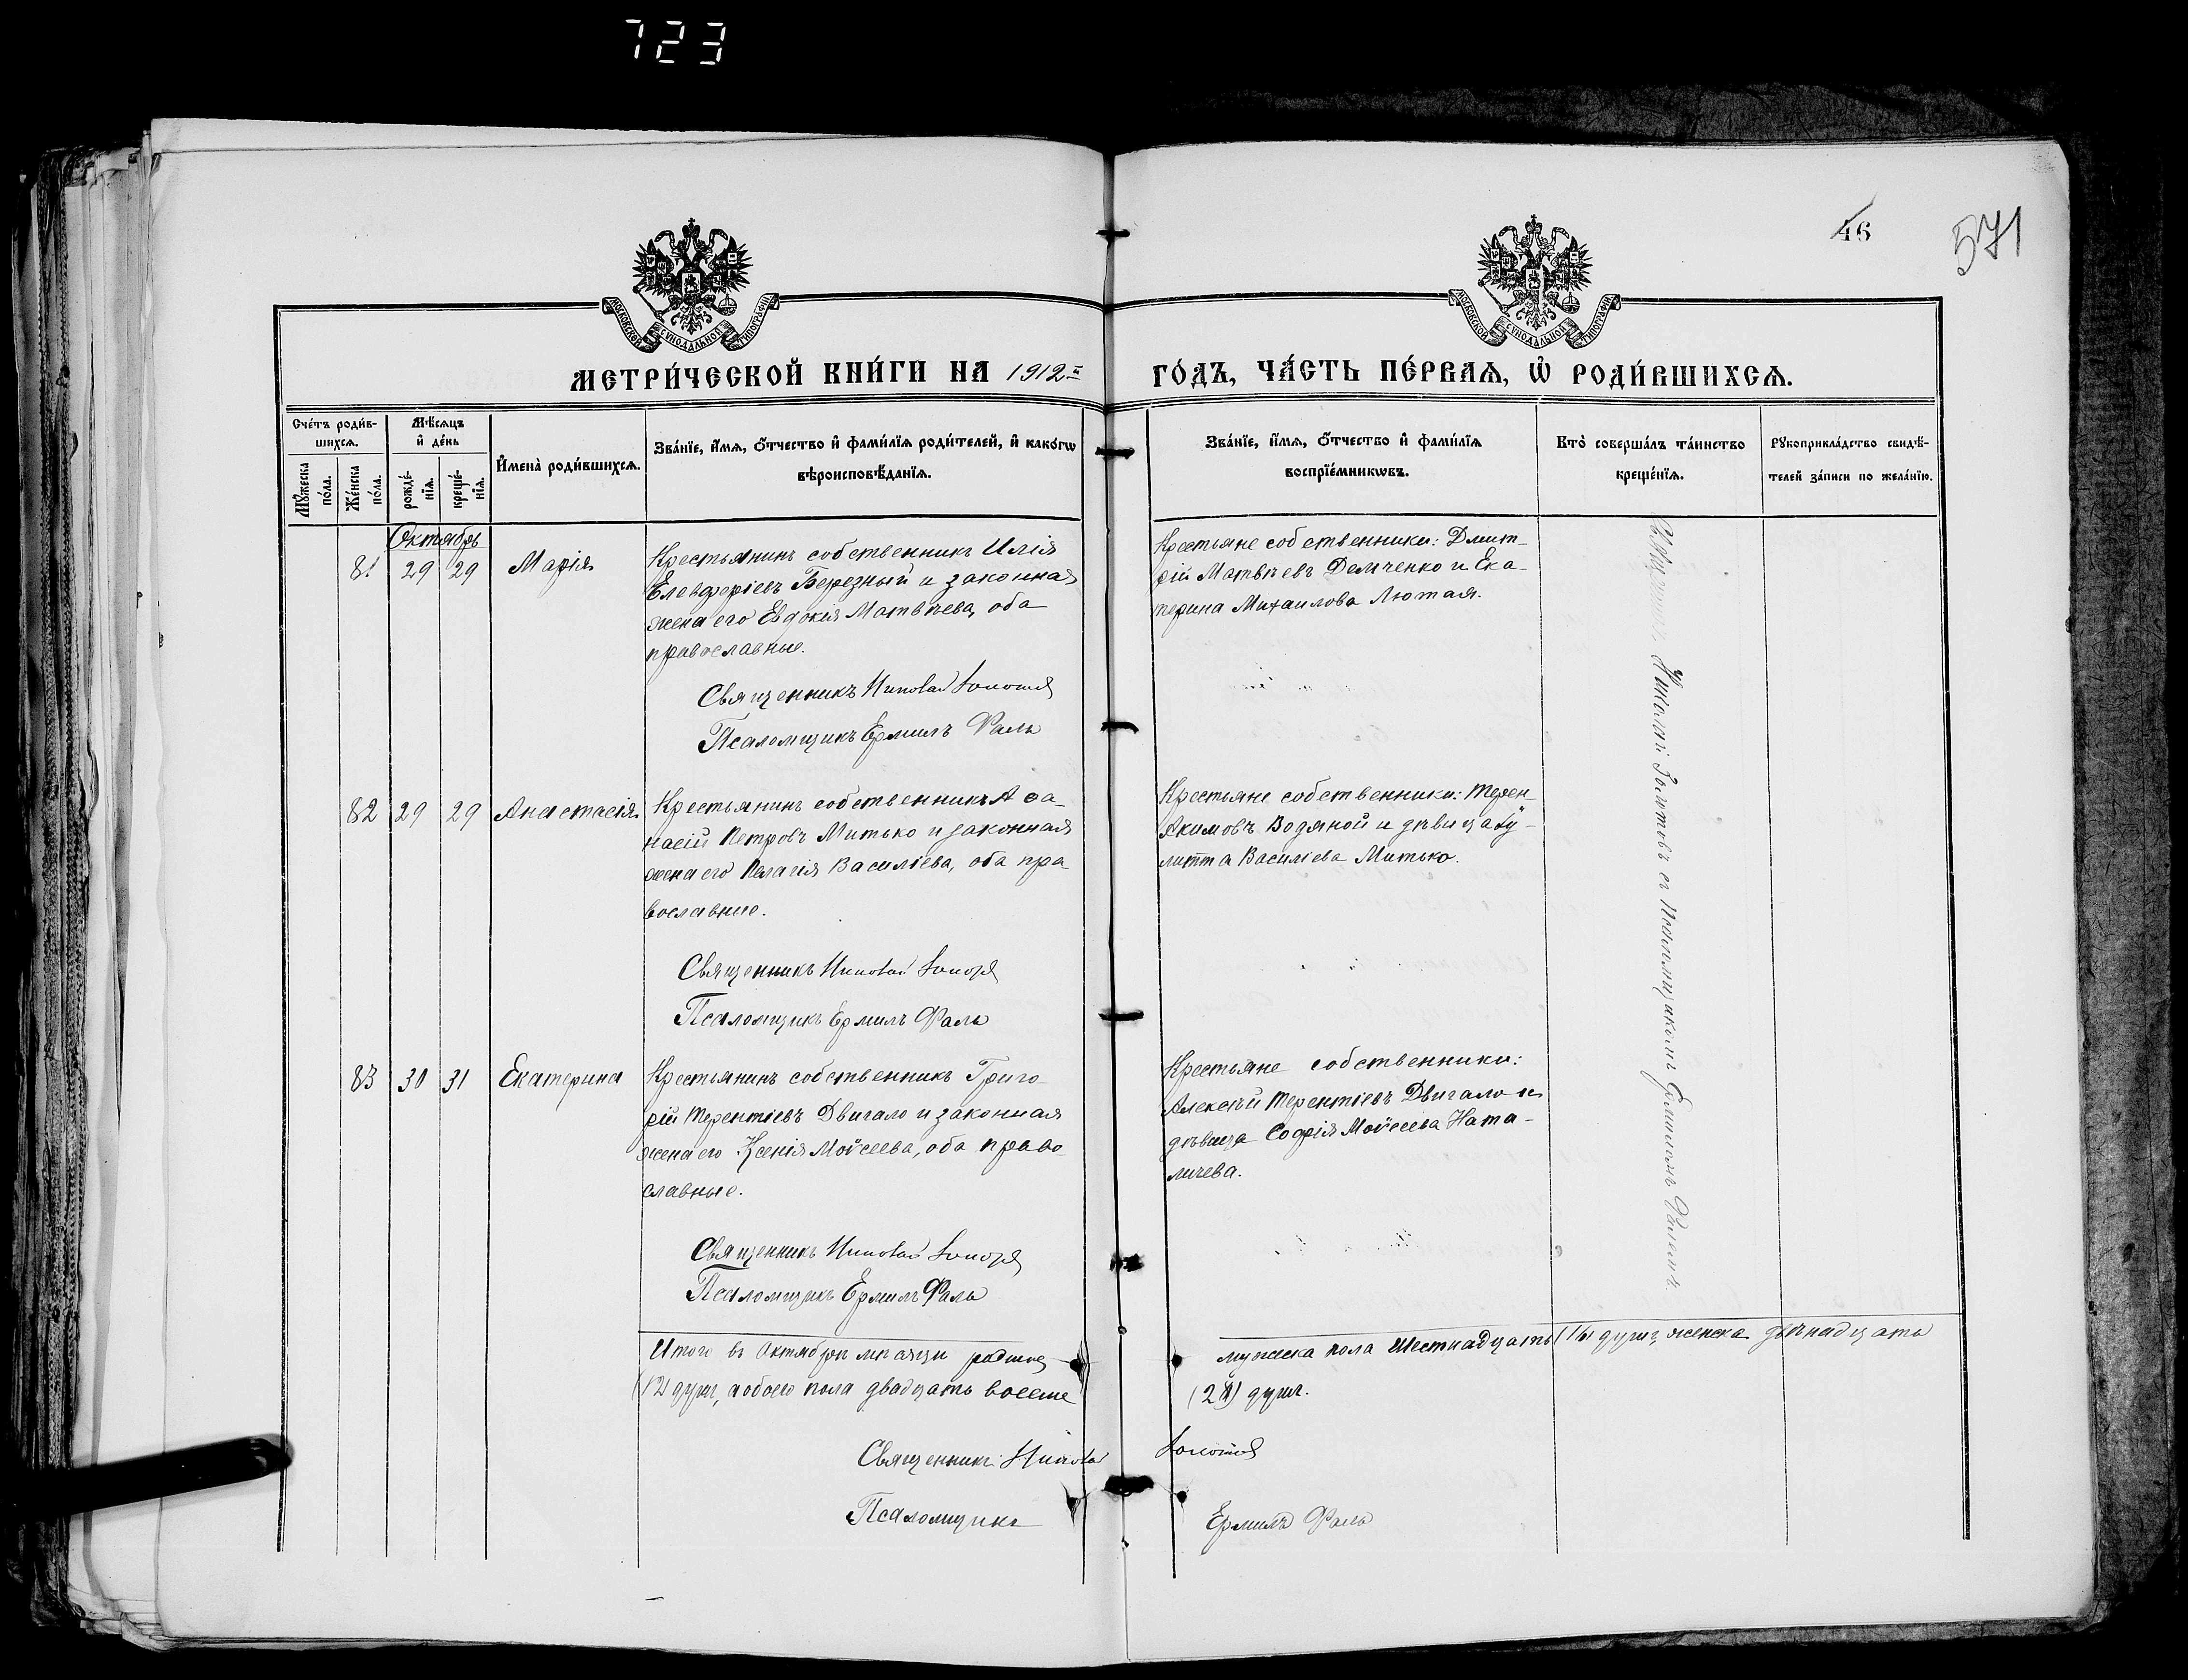 723
46
571
МОСКОВСКОЙ СѴНОДАЛЬНОЙ ТИПОГРАФІИ
МОСКОВСКОЙ СѴНОДАЛЬНОЙ ТИПОГРАФІИ
МЕТРИ́ЧЕСКОЙ КНИ́ГИ НА 1912й ГО́ДЪ, ЧА́СТЬ ПЕ́РВАѦ, Ѡ҆ РОДИ́ВШИХСѦ.
Сче́тъ роди́в-
шихсѧ.
Мꙋ́жеска
по́ла.
Же́нска
по́ла.
Мѣ́сѧцъ
и҆ де́нь
рожде́-
нїѧ.
креще́-
нїѧ.
И҆мена̀ роди́вшихсѧ.
Зва́нїе, и҆́мѧ, ѻ҆́тчество и҆ фами́лїѧ роди́телей, и҆ како́гѡ
вѣроисповѣ́данїѧ.
Зва́нїе, и҆́мѧ, ѻ҆́тчество и҆ фами́лїѧ
воспрїе́мникѡвъ.
Кто̀ соверша́лъ та́инство
креще́нїѧ.
Рꙋкоприкла́дство свидѣ́-
телей за́писи по жела́нїю.
Октябрь
81 29 29 Марія
Крестьянинъ собственникъ Илія
Елевферіевъ Березный и законная
жена его Евдокія Матвѣева, оба
православные.
Священникъ Николай
Псаломщикъ Ермилъ Фаль
Крестьяне собственники: Дмит-
рій Матвѣевъ Демченко и Ека-
терина Михаилова Лютая.
Священникъ Николай Золотовъ съ Псаломщикомъ Ермиломъ Фалемъ.
82 29 29 Анастасія
Крестьянинъ собственникъ Афа-
насій Петровъ Митько и законная
жена его Пелагія Василіева, оба пра-
вославные.
Священникъ Николай
Псаломщикъ Ермилъ Фаль
Крестьяне собственники: Терен-
Якимовъ Водяной и дѣвица Іу-
литта Василіева Митько.
83 30 31 Екатерина
Крестьянинъ собственникъ Григо-
рій Терентіевъ Двигало и законная
жена его Ксенія Моѵсеева, оба право-
славные.
Священникъ Николай
Псаломщикъ Ермилъ Фаль
Крестьяне собственники:
Алексѣй Терентіевъ Двигало и
дѣвица Софія Моѵсеева Ната-
личева.
Итого въ Октябрѣ мѣсяцѣ мужеска пола шестнадцать (16) душъ, женска двѣнадцать
(12) душъ, а обоего пола двадцать восемь (28) душъ.
Священникъ Николай
Псаломщикъ Ермилъ Фаль